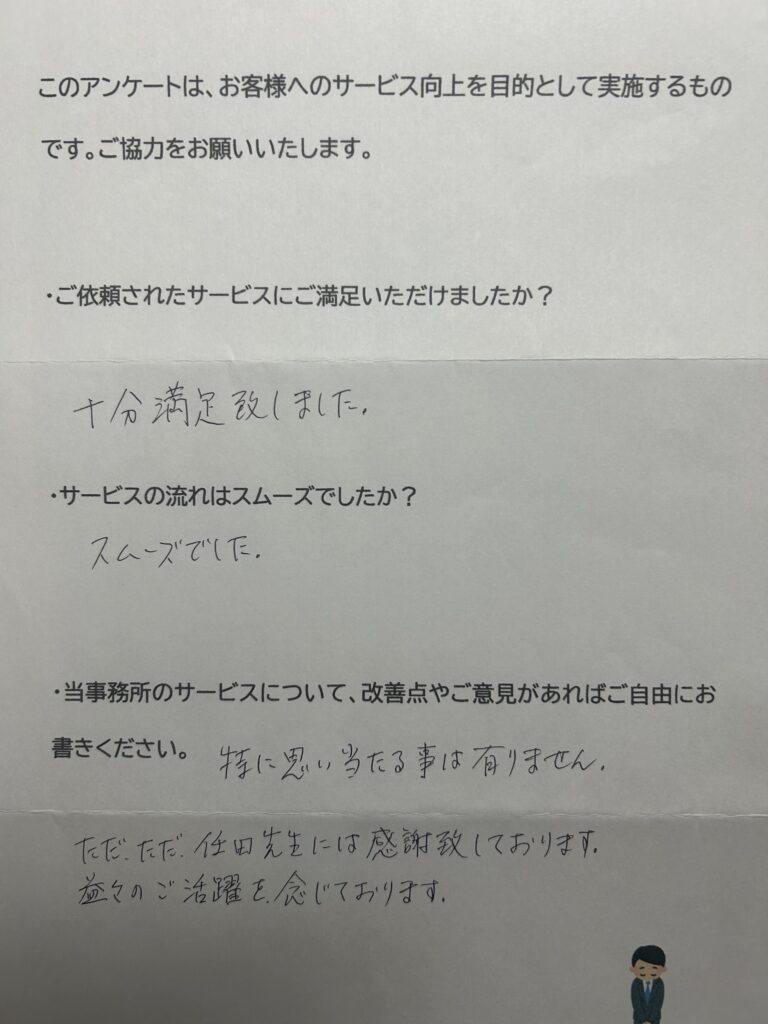 このアンケートは、お客様へのサービス向上を目的として実施するもの
です。ご協力をお願いいたします。
・ご依頼されたサービスにご満足いただけましたか？
十分満足致しました.
・サービスの流れはスムーズでしたか？
スムーズでした.
・当事務所のサービスについて、改善点やご意見があればご自由にお
書きください。 特に思い当たる事は有りません.
ただ、ただ、任田先生には感謝致しております.
益々のご活躍を念じております.